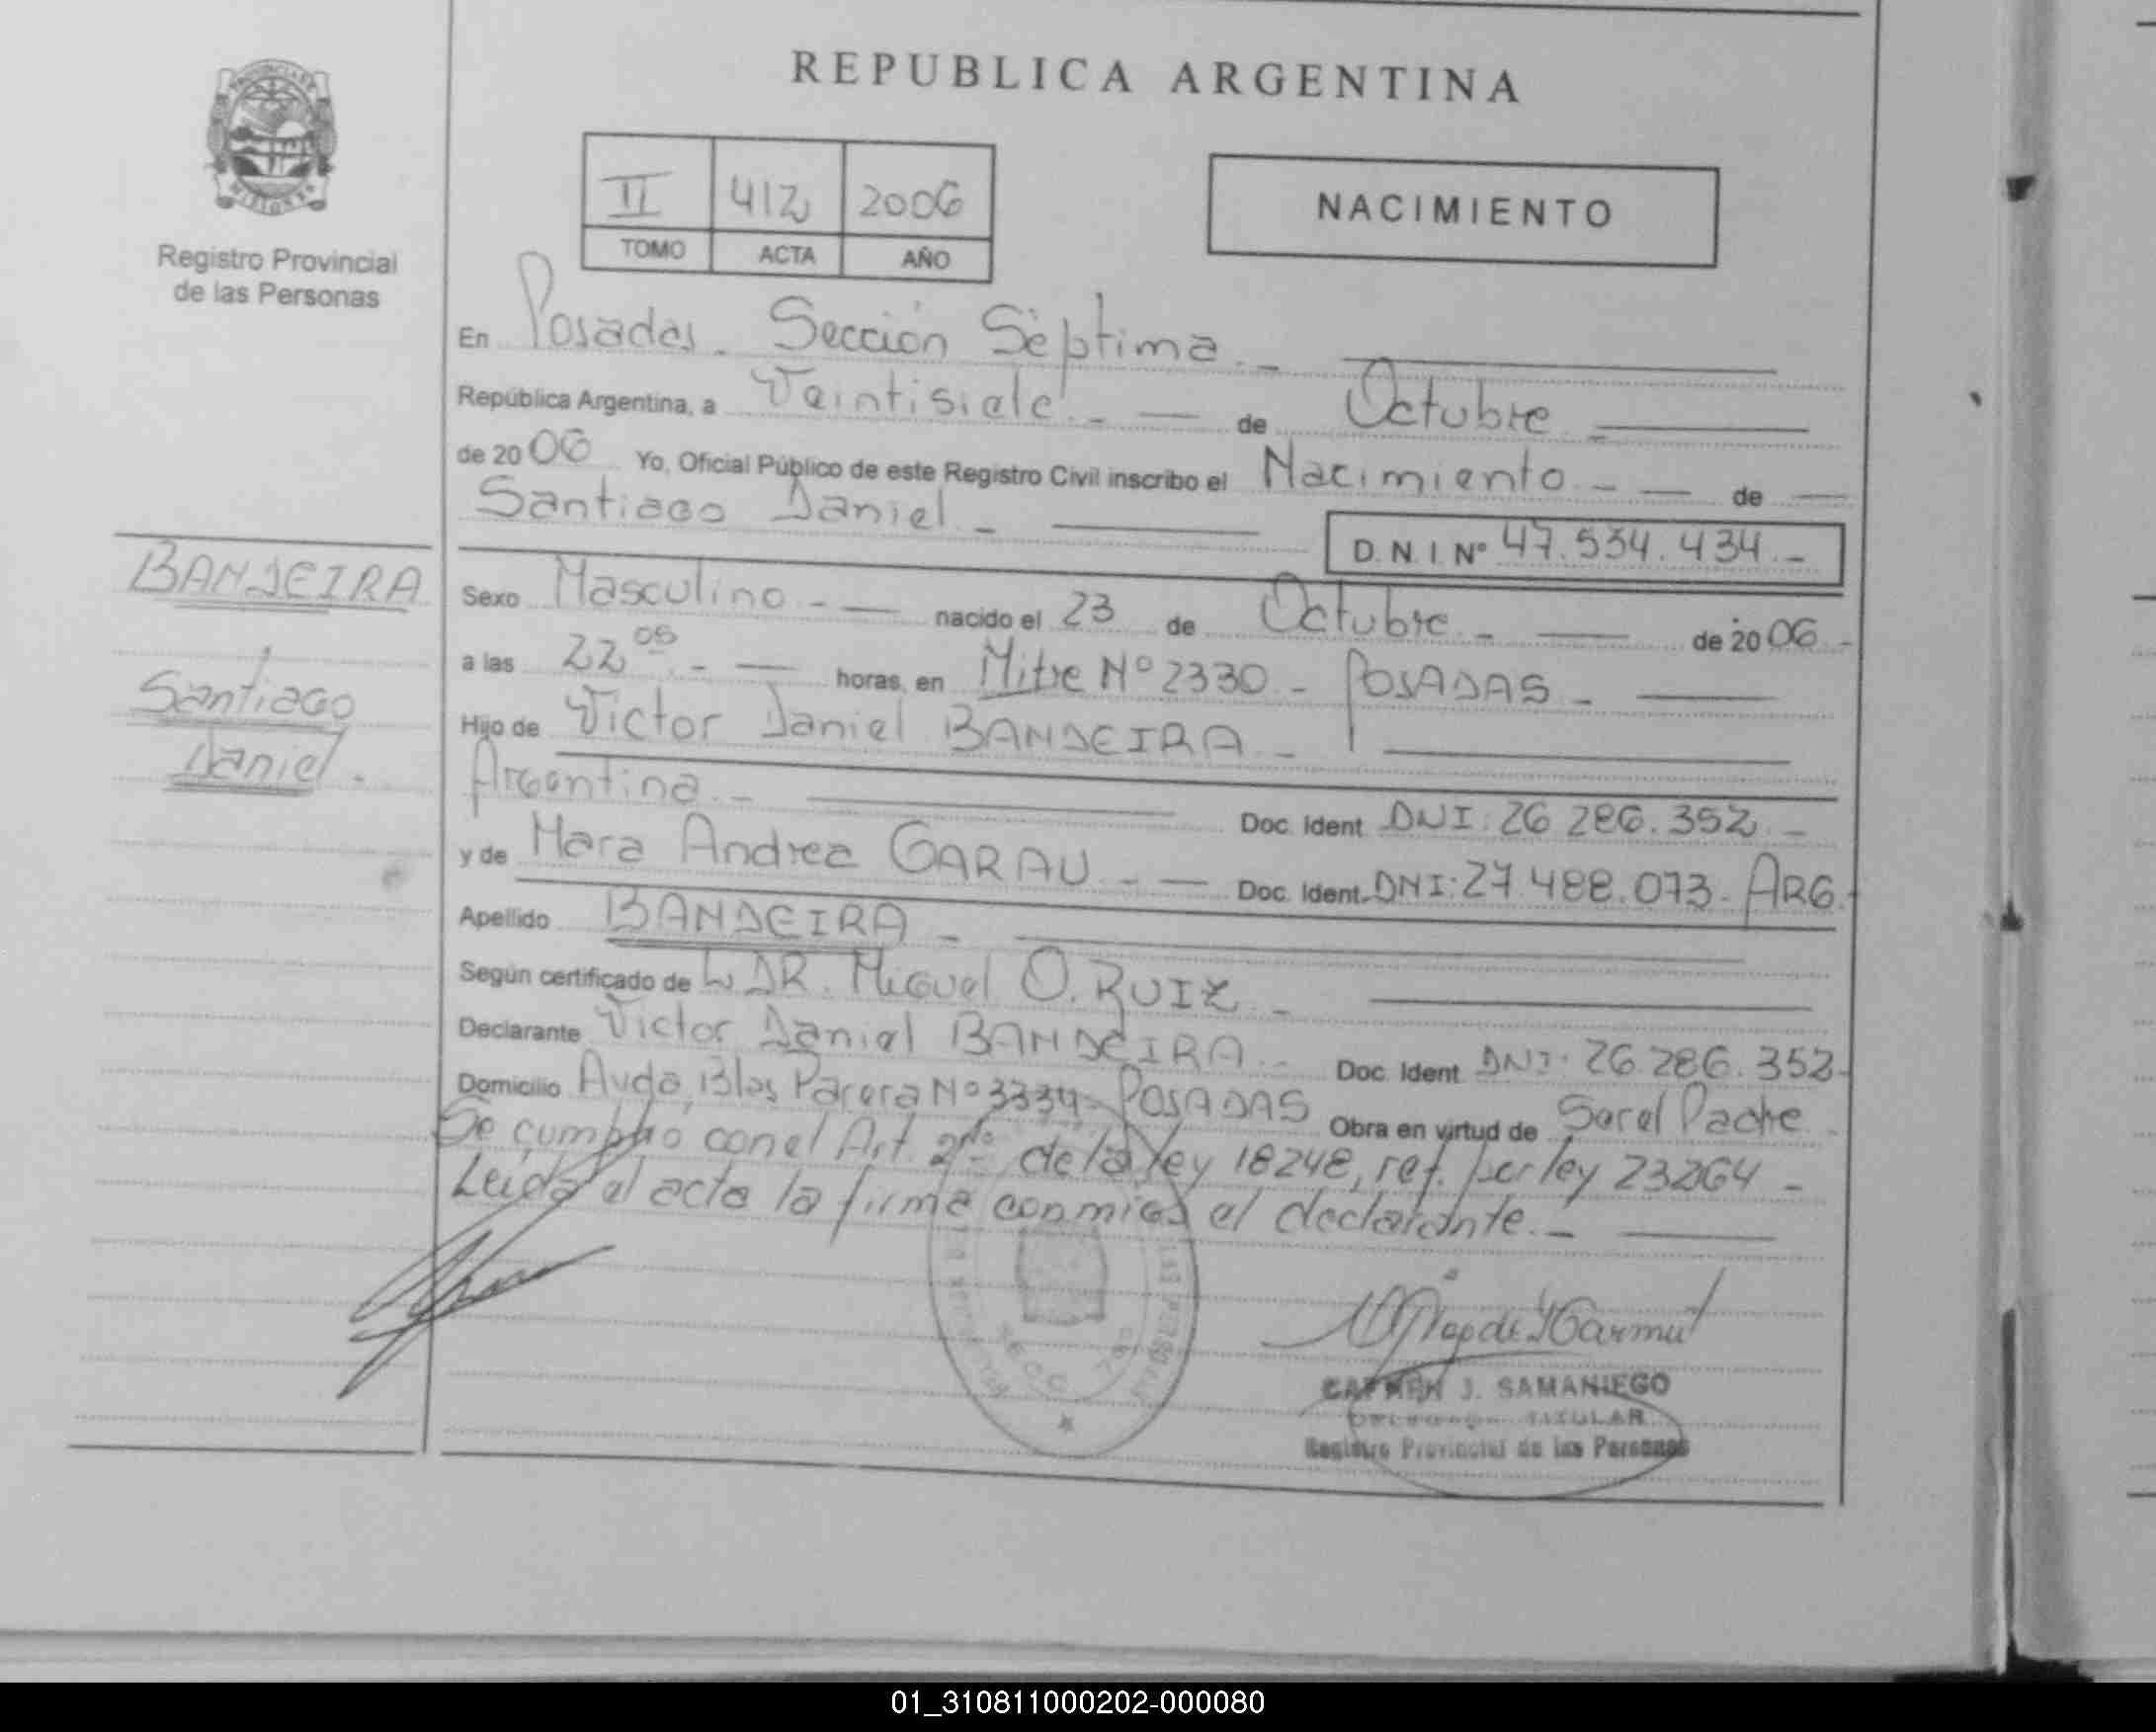 REPUBLICA ARGENTINA
PROVINCIA DE
MISIONES
Registro Provincial
de las Personas
II 412 2006
TOMO ACTA AÑO
NACIMIENTO
En Posadas - Sección Séptima -
República Argentina, a Veintisiete - de Octubre -
de 2006 Yo, Oficial Público de este Registro Civil inscribo el Nacimiento - - de
Santiago Daniel - D.N.I. Nº 47.534.434.-
BANDEIRA
Santiago
Daniel.
Sexo Masculino - nacido el 23 de Octubre - de 2006 -
a las 22 05 - horas, en Mitre Nº 2330 - POSADAS -
Hijo de Victor Daniel BANDEIRA -
Argentina - Doc. Ident. DNI: 26.286.352 -
y de Mara Andrea GARAU - - Doc. Ident. DNI: 27.488.073 - ARG.
Apellido BANDEIRA -
Según certificado de DR. Miguel O. RUIZ -
Declarante Victor Daniel BANDEIRA - Doc. Ident DNI: 26.286.352-
Domicilio Avda. Blas Parera Nº 3334 - POSADAS Obra en virtud de Ser el Padre -
Se cumplió con el Art. 2do de la ley 18248, ref. por ley 23264 -
Leída el acta la firma conmigo el declarante. -
CARMEN J. SAMANIEGO
TITULAR
Registro Provincial de las Personas
01_310811000202-000080